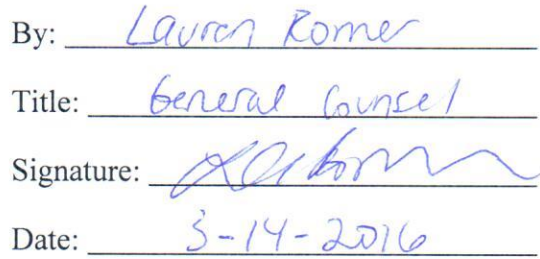 By: Lauren Romer
Title: General Counsel
Signature:
Date: 3-14-2016